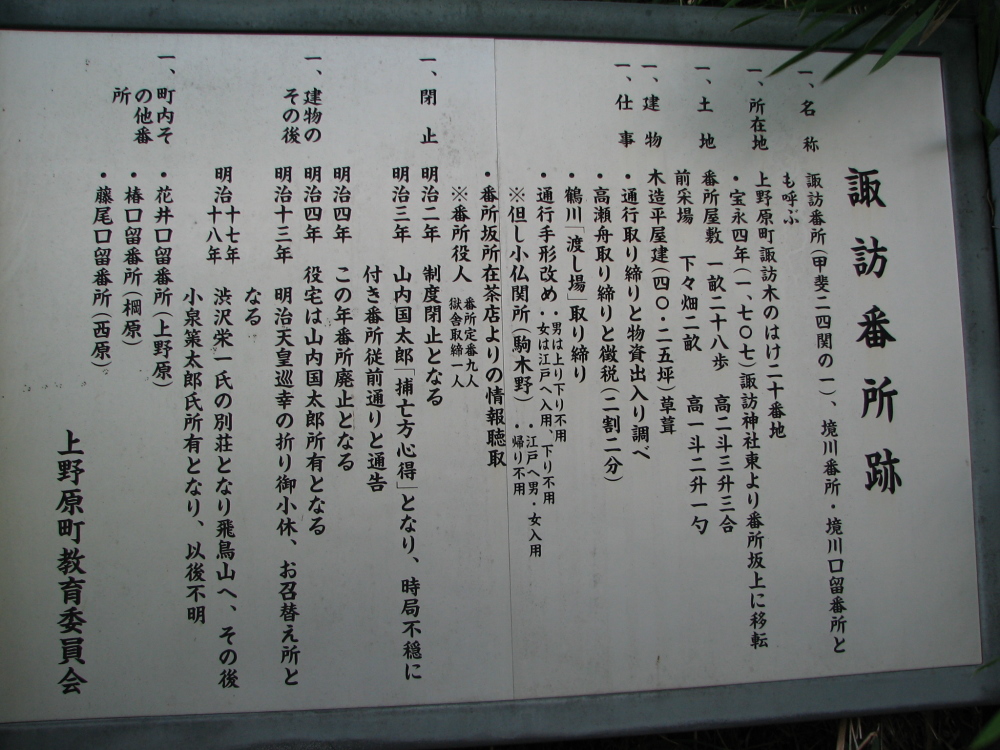 諏訪番所跡
一、名称 諏訪番所(甲斐二四関の一)、境川番所・境川口留番所と
も呼ぶ
一、所在地 上野原町諏訪木のはけ二十番地
・宝永四年(一、七〇七)諏訪神社東より番所坂上に移転
一、土地 番所屋敷 一畝二十八歩 高二斗三升三合
前采場 下々畑二畝 高一斗二升一勺
一、建物 木造平屋建(四〇・二五坪)草葺
一、仕事 ・通行取り締りと物資出入り調べ
・高瀬舟取り締りと徴税(二割二分)
・鶴川「渡し場」取り締り
・通行手形改め ・男は上り下り不用
・女は江戸へ入用、下り不用
※但し小仏関所(駒木野) ・江戸へ男・女入用
・帰り不用
・番所坂所在茶店よりの情報聴取
※番所役人 番所定番九人
獄舎取締一人
一、閉止 明治二年 制度閉止となる
明治三年 山内国太郎「捕亡方心得」となり、時局不穏に
付き番所従前通りと通告
明治四年 この年番所廃止となる
一、建物の
その後
明治四年 役宅は山内国太郎所有となる
明治十三年 明治天皇巡幸の折り御小休、お召替え所と
なる
明治十七年
十八年
渋沢栄一氏の別荘となり飛鳥山へ、その後
小泉策太郎氏所有となり、以後不明
一、町内そ
の他番
所
・花井口留番所(上野原)
・椿口留番所(棡原)
・藤尾口留番所(西原)
上野原町教育委員会